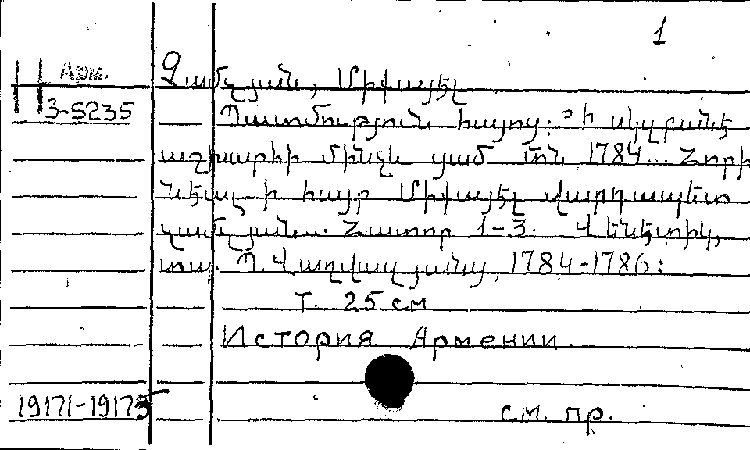 1
Арм. Չամչյան, Միքայել
3-5235 Պատմություն հայոց: Ի սկզբանէ
աշխարհի մինչև ցամ տոն 1784... Հորի
նեալ ի հայր Միքայէլ վարդապետ
չամչյան... Հատոր 1-3. Վենետիկ,
տպ. Պ. Վաղվազյանց, 1784-1786:
т. 25 см
История Армении.
19171-19175 см. пр.